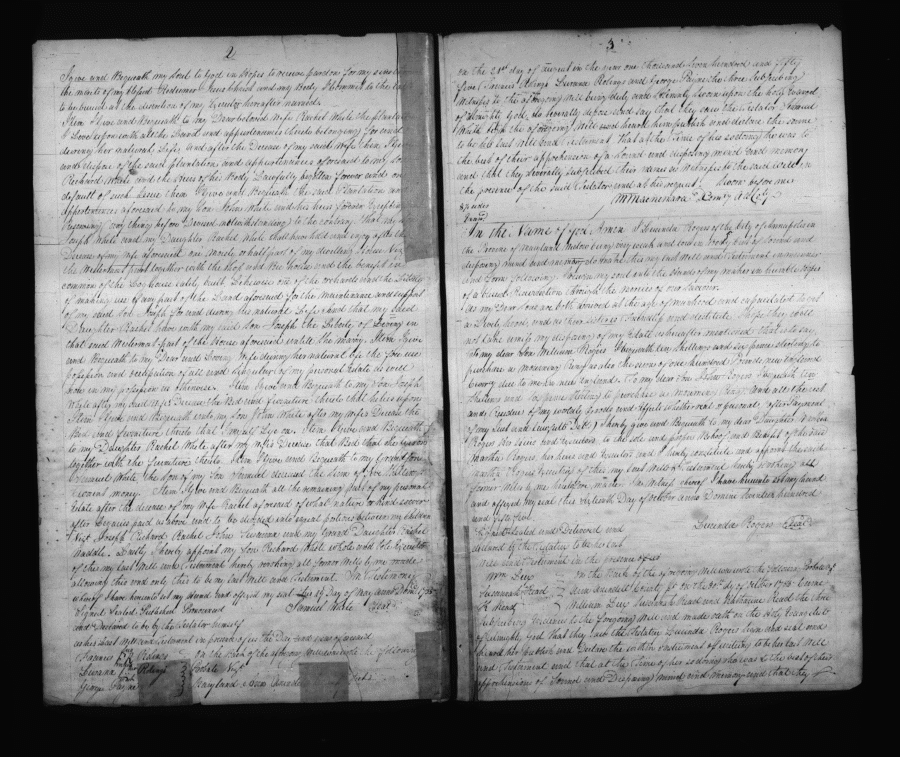 2
I give and Bequeath my Soul to God in hopes to receive pardon for my sins
the merits of my blessed Redeemer Jesus Christ and my Body I commit to the
to be buried at the discretion of my Executor hereafter named.
Item I Give and Bequeath to my Dear beloved wife Rachel White the plantation
I Live upon with all the Land and appurtenances thereto belonging for and
during her natural Life, and after the Decease of my said Wife then I Give
and dispose of the said plantation and appurtenances aforesaid to my
Richard White and the heirs of his Body Lawfully begotten forever and in
default of such Issue then I give and Bequeath the said Plantation and
appertenances aforesaid to my Son John White and his heirs forever
any thing before Devised notwithstanding to the contrary that my
Joseph White and my Daughter Rachel White shall have hold and enjoy after the
Decease of my wife aforesaid one Moiety or half part of my dwelling
the Westernmost part together with the Shop
common of the Log house lately built Likewise one of the orchards and the Liberty
of making use of any part of the Land aforesaid for the Maintenance and support
of my said Son Joseph for and during his natural Life and that my said
Daughter Rachel have with my said Son Joseph the Liberty of Living in
that said Westernmost part of the House aforesaid until she marry Item I give
and Bequeath to my Dear and Loving Wife during her natural life the free use
possession and occupation of all and singular of my personal Estate as well
now in my possession as otherwise. Item I give and Bequeath to my Son Joseph
White after my said Wifes Decease the Bed and furniture thereto that he lies upon
Item I Give and Bequeath unto my Son John White after my Wifes Decease the
Bed and furniture thereto that I must Lye on Item I Give and Bequeath
to my Daughter Rachel White after my wife's Decease that Bed that she
together with the furniture thereto. Item I Give and Bequeath to my Grandson
Samuel White the Son of my Son Samuel deceased the Sum of five Shillings
current money. Item I give and Bequeath all the remaining part of my personal
Estate after the decease of my Wife Rachel aforesaid of what nature or kind soever
after Legacies paid as above and to be divided into equal portions between my children
Vizt Joseph Richard Rachel John Susanna and my Grand Daughter Rachel
Waddle. Lastly I hereby appoint my Son Richard White whole and Sole Executor
of this my last Will and Testament hereby revoking all former Wills by me made
allowing this and only this to be my last Will and Testament. In testimony
whereof I have hereunto set my hand and affixed my Seal this 19 Day of May anno Domini 1755
Signed Sealed Published Pronounced Samuel White Seal
and declared to be by the Testator himself
as his last Will and Testament in presence of us the Day and year aforesaid
Ridings On the Back of the aforegoing Will was wrote the following
Probate Vizt
George Payne Maryland Ann Arundel
3
on the 21st day of August in the year one thousand seven hundred and fifty
five Ridings Susanna Ridings and George Payne the three Subscribing
Witnesses to the aforegoing Will being duly and solemnly sworn upon the holy Evangels
of Almighty God, do severally depose and say that they saw the Testator Samuel
White sign the aforegoing Will and heard him publish and declare the same
to be his last Will and Testament. That at the Time of his so doing he was to
the best of their apprehension of a sound and disposing mind and memory
and that they severally subscribed their names as Witnesses to the said Will in
the presence of the said Testator and at his request. Sworn before me
Macnemara Comry A A Coty
In the Name of God Amen I Lucinda Rogers of the City of Annapolis in
the Province of Maryland Widow being very weak and low in body but of Sound and
disposing Mind and memory do make this my last Will and Testament in manner
and form following. I resign my soul into the Hands of my maker in humble hopes
of a blessed Resurrection through the mercies of our Saviour.
As my Dear Sons are both arrived at the age of manhood and capacitated to get
a Livelyhood, and as their Sister is and destitute I hope they will
not take amiss my disposing of my Estate as hereafter mentioned that is to say,
To my dear Son William Rogers I bequeath ten Shillings and six pence sterling to
purchase a Mourning Ring as also the sum of one hundred Pounds new England
Currency due to me in new England. To my dear Son John Rogers I bequeath ten
Shillings and six pence sterling to purchase a Mourning Ring. And all the rest
and residue of my worldly Goods and Effects whether real or personal after payment
of my Just and Lawfull Debts I hereby give and Bequeath to my dear Daughter Martha
Rogers her heirs and Executors to the sole and proper Behoof and Benefit of the said
Martha Rogers her heirs and Executors and I hereby constitute and appoint the said
Martha Rogers Executrix of this my last Will & Testament hereby revoking all
former Wills by me heretofore made. In Witness whereof I have hereunto set my hand
and affixed my seal this sixteenth Day of October anno Domini Seventeen hundred
and fifty five.
Signed Sealed and Delivered and Lucinda Rogers Seal
declared by the Testatrix to be her last
Will and Testament in the presence of us
Wm. Dew On the Back of the aforegoing Will was wrote the following Probate Vizt
Susannah Head Ann Arundell County Ss On the 30th dy of October 1755 Came
K Head William Dew Susannah Head and Katharine Head the three
Subscribing Witnesses to the foregoing Will and made oath on the Holy Evangels
of Almighty God that they saw the Testatrix Lucinda Rogers sign and seal and
heard her publish and Declare the within Instrument of writing to be her last Will
and Testament and that at the Time of her so doing she was to the best of their
apprehensions of Sound and Disposing mind and memory and that they